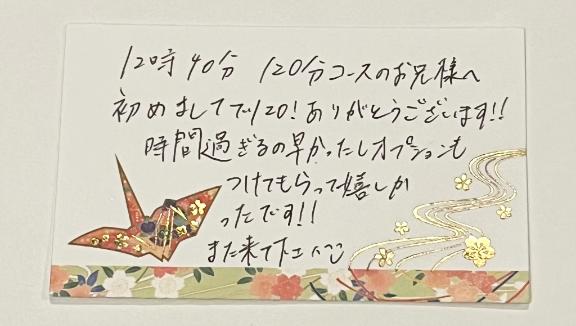 12時40分 120分コースのお兄様へ
初めましてで120!ありがとうございます!!
時間過ぎるの早かったしオプションも
つけてもらって嬉しか
ったです!!
また来て下